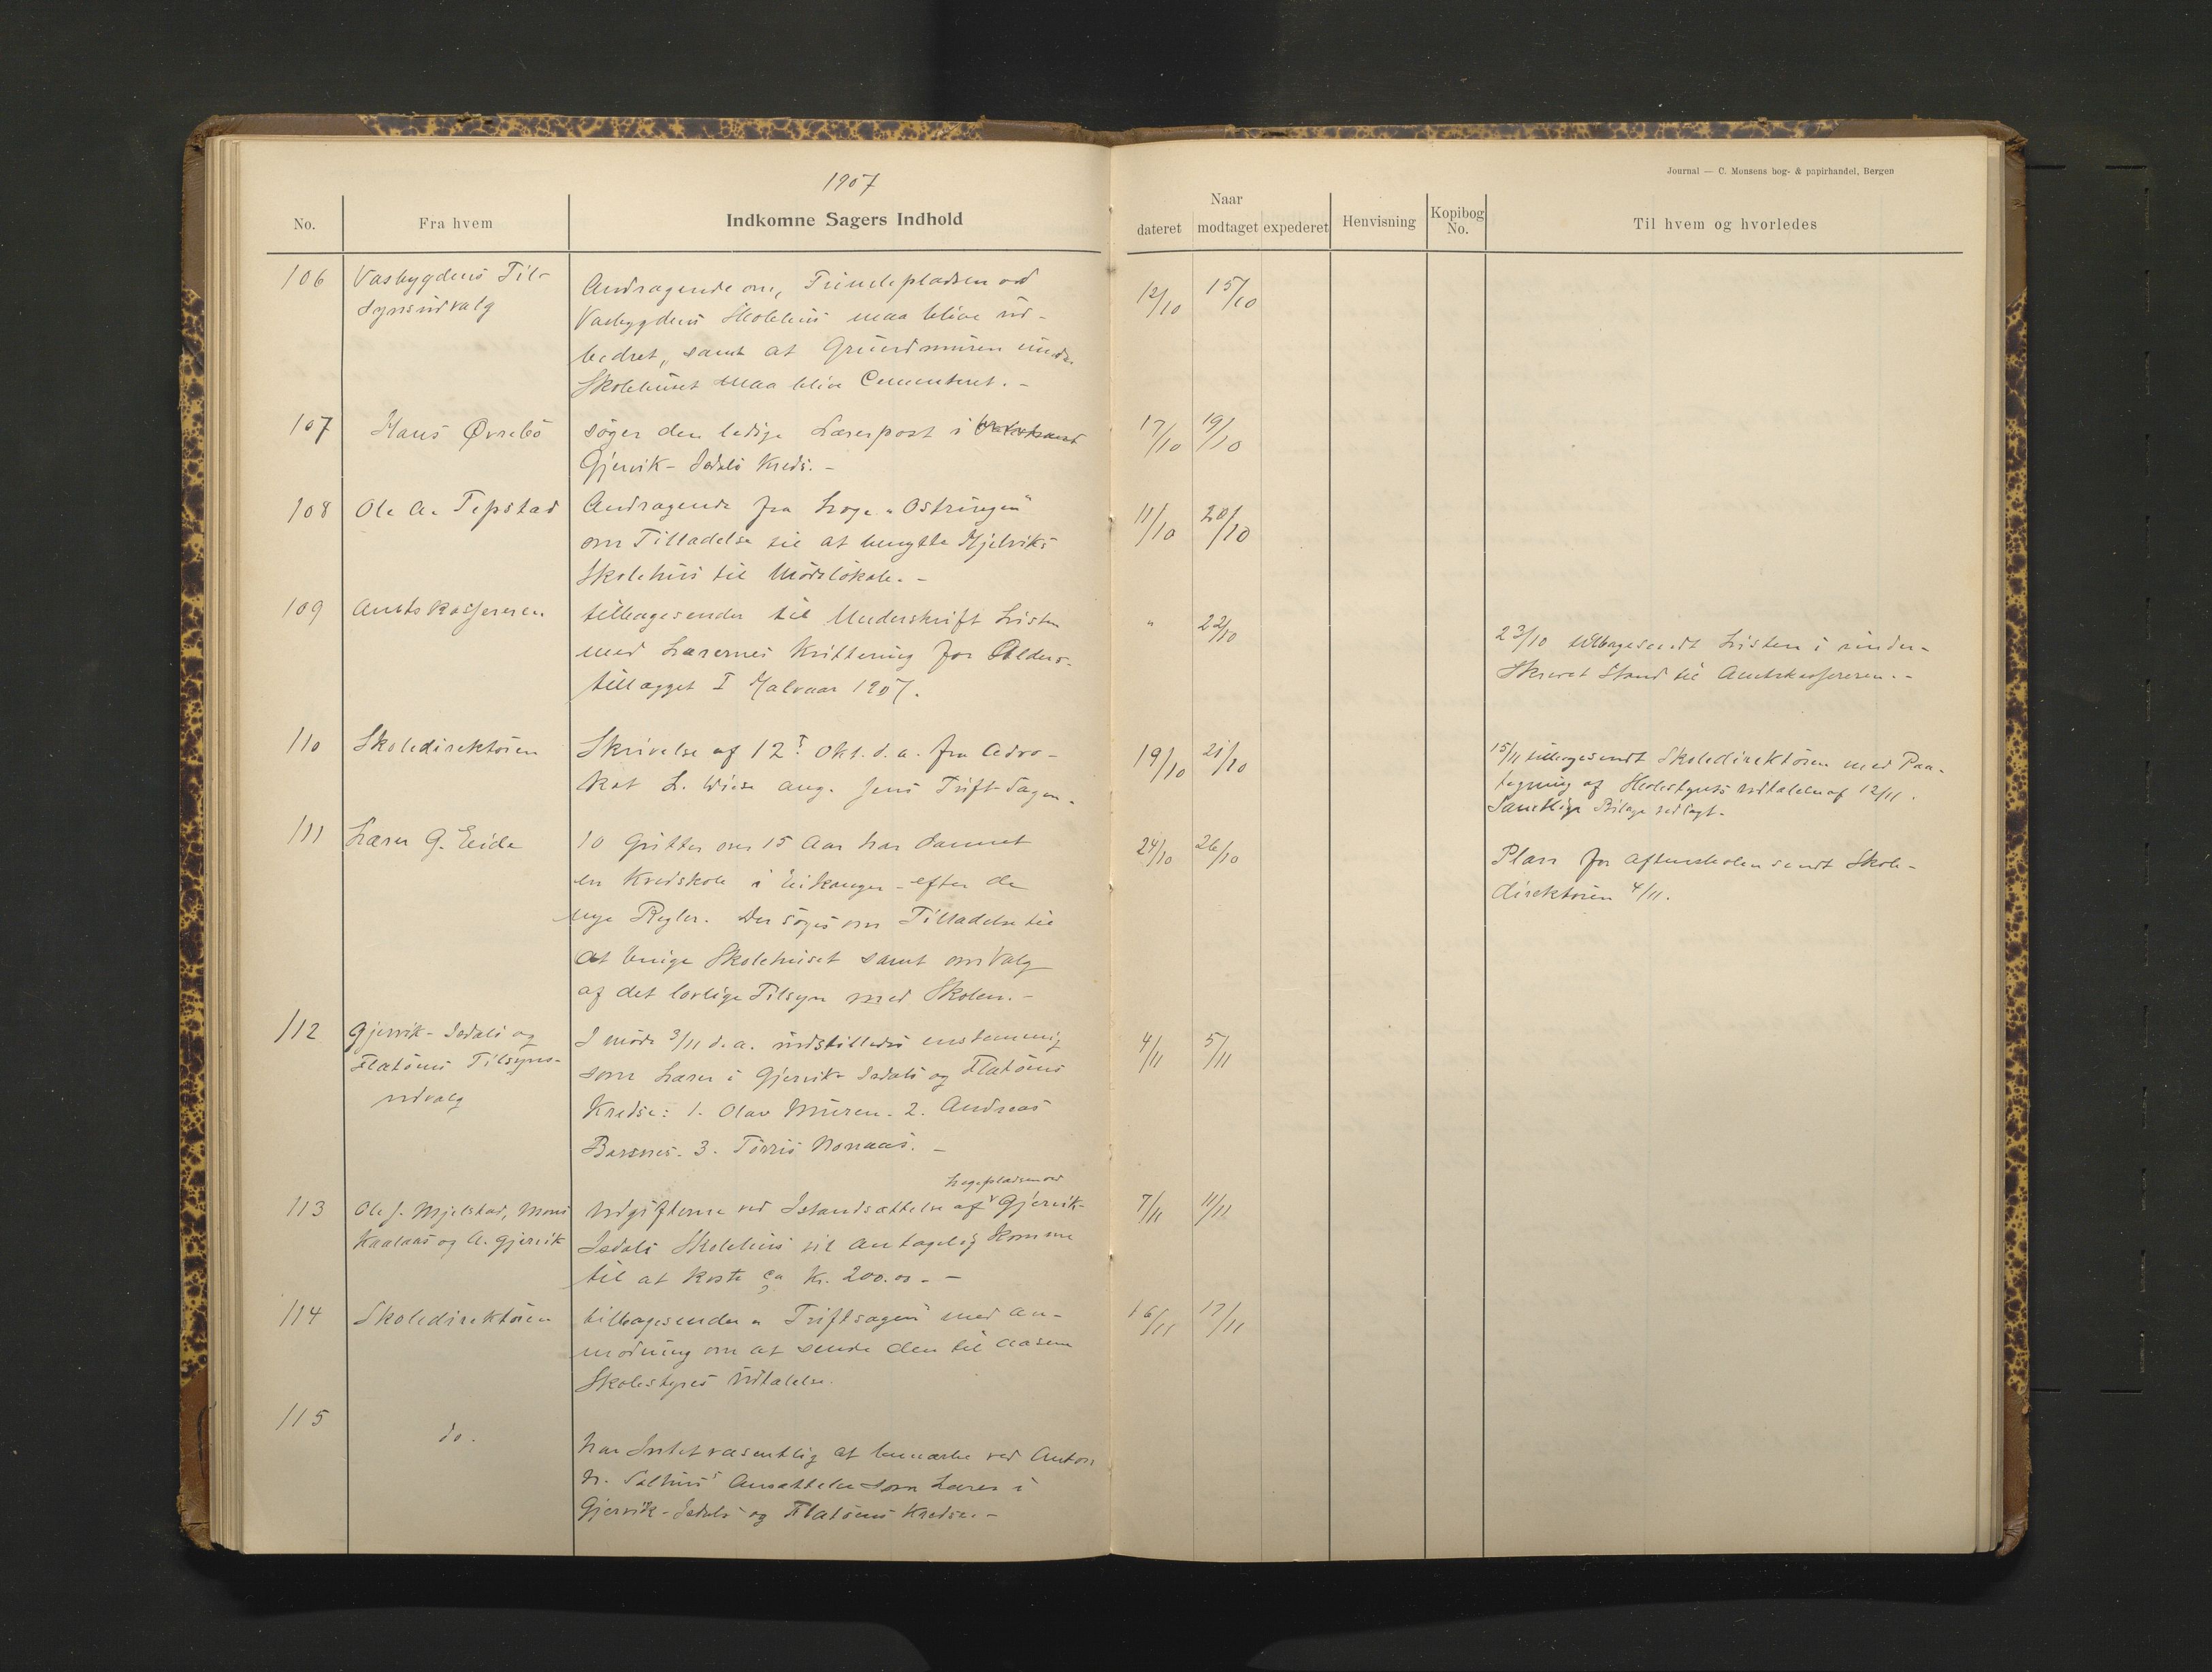 1907
Journal — C. Monsens bog- & papirhandel, Bergen
No.
Fra hvem
Indkomne Sagers Indhold
Naar
dateret
modtaget
expederet
Henvisning
Kopibog
No.
Til hvem og hvorledes
106
Vasbygdens Til-
synsudvalg
Andragende om, Tuntepladsen ved
Vasbygdens Skolehus maa blive ud-
bedret, samt at Grundmuren under
Skolehuset maa blive Cementeret. -
12/10
15/10
107
Hans Øvrebö
söger den ledige Lærerpost i
Gjervik - Isdals Kreds. -
17/10
19/10
108
Ole A. Tepstad
Andragende fra Loge „Ostringen"
om Tilladelse til at benytte Mjelviks
Skolehus til Mödelokale. -
11/10
20/10
109
Amtskassereren
tilbagesender til Underskrift Listen
med Lærernes Kvittering for Alders-
tillægget I Halvaar 1907.
"
22/10
23/10 tilbagesendt Listen i under-
skrevet Stand til Amtskassereren. -
110
Skoledirektören
Skrivelse af 12. Okt. d. a. fra Advo-
kat L. Wiese ang. Jens Triftsagen.
19/10
21/10
15/11 tilbagesendt Skoledirektören med Paa-
tegning af Skolestyrets Udtalelse af 12/11.
Samtlige Bilage vedlagt.
111
Lærer G. Eide
10 Gutter over 15 Aar har dannet
en Kredskole i Eikanger - efter de
nye Regler. Der söges om Tilladelse til
at bruge Skolehuset samt om Valg
af det lovlige Tilsyn med Skolen. -
24/10
26/10
Plan for Aftenskolen sendt Skole-
direktören 4/11.
112
Gjervik - Isdals og
Flatöens Tilsyns-
udvalg
I möde 3/11 d. a. indstilledes enstemmig
som Lærer i Gjervik - Isdals og Flatöens
Kredse: 1. Olav Muren. 2. Andreas
Barsnes. 3. Torris Nonaas. -
4/11
5/11
113
Ole J. Mjelstad, Mons
Kaalaas og A. Gjervik
Legepladsen ved
Udgifterne ved Istandsættelse af Gjervik-
Isdals Skolehus vil antagelig komme
til at koste ca Kr. 200.00. -
7/11
11/11
114
Skoledirektören
tilbagesender „Triftsagen" med an-
modning om at sende den til Aasene
Skolestyres Udtalelse.
16/11
17/11
115
do.
har Intet væsentlig at bemærke ved Anton
N. Salhus' Ansættelse som Lærer i
Gjervik - Isdals og Flatöens Kredse. -